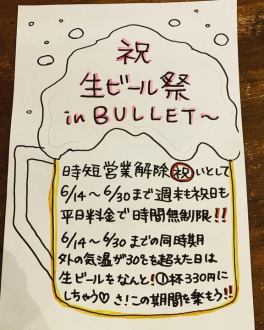 祝
生ビール祭
in BULLET～
時短営業解除祝いとして
6/14～6/30まで週末も祝日も
平日料金で時間無制限!!
6/14～6/30までの同時期
外の気温が30℃を超えた日は
生ビールをなんと!①杯330円に
しちゃう♡さ!この期間を楽もう!!